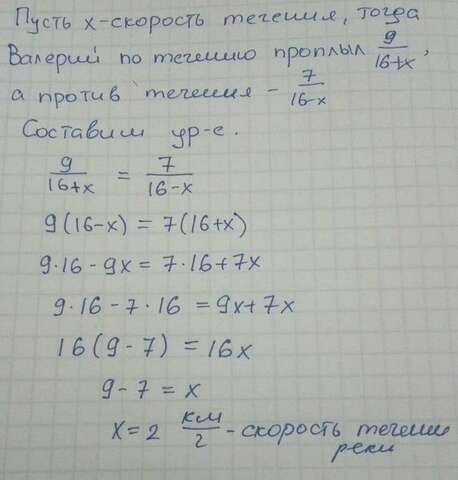 Пусть x-скорость течения, тогда
Валерий по течению проплыл 9/(16+x),
а против течения - 7/(16-x)
Составим ур-е.
9/(16+x) = 7/(16-x)
9(16-x) = 7(16+x)
9·16-9x = 7·16+7x
9·16-7·16 = 9x+7x
16(9-7) = 16x
9-7 = x
x=2 км/г - скорость течения
реки